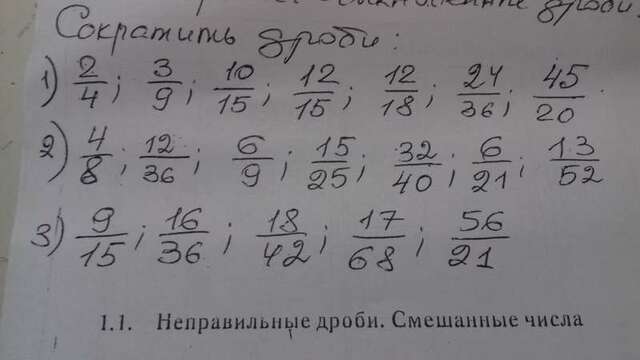 дроби.
Сократить дроби:
1) 2/4; 3/9; 10/15; 12/15; 12/18; 24/36; 45/20.
2) 4/8; 12/36; 6/9; 15/25; 32/40; 6/21; 13/52
3) 9/15; 16/36; 18/42; 17/68; 56/21
1.1. Неправильные дроби. Смешанные числа